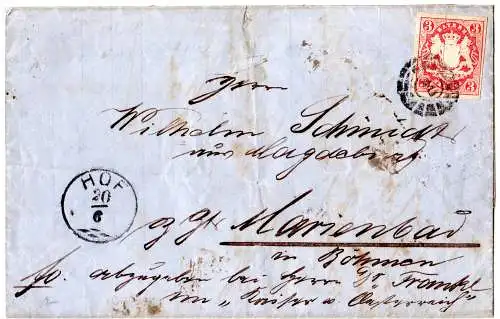 3 BAYERN 3
3
Herrn
Wilhelm Schmidt
aus Magdeburg
HOF
20
6
z. Zt. Marienbad
in Böhmen
fo. abzugeben bei Herrn Frankl
im „Kaiser v. Oesterreich"